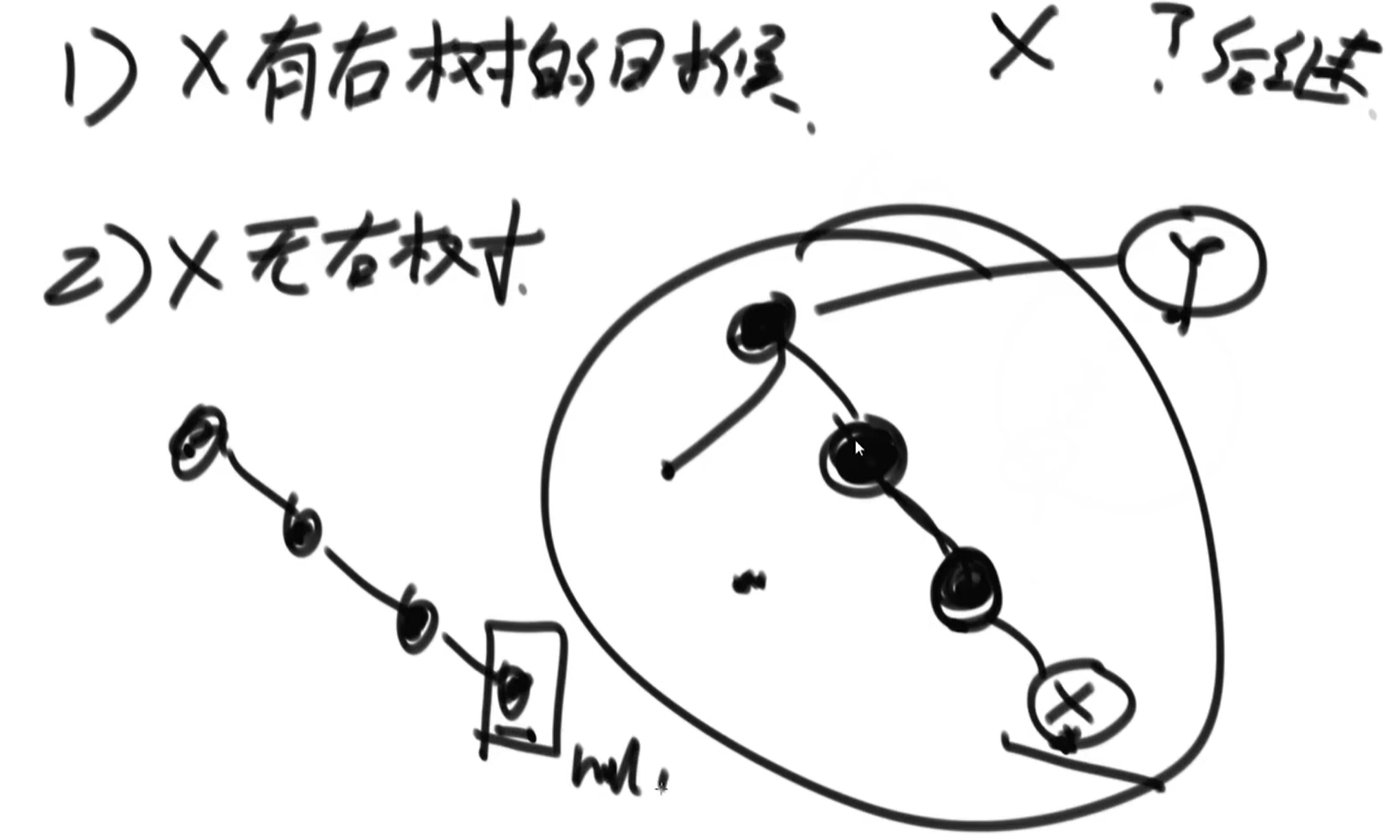 1) X 有右树的时候.
X ? 后继
2) X 无右树.
Y
X
null